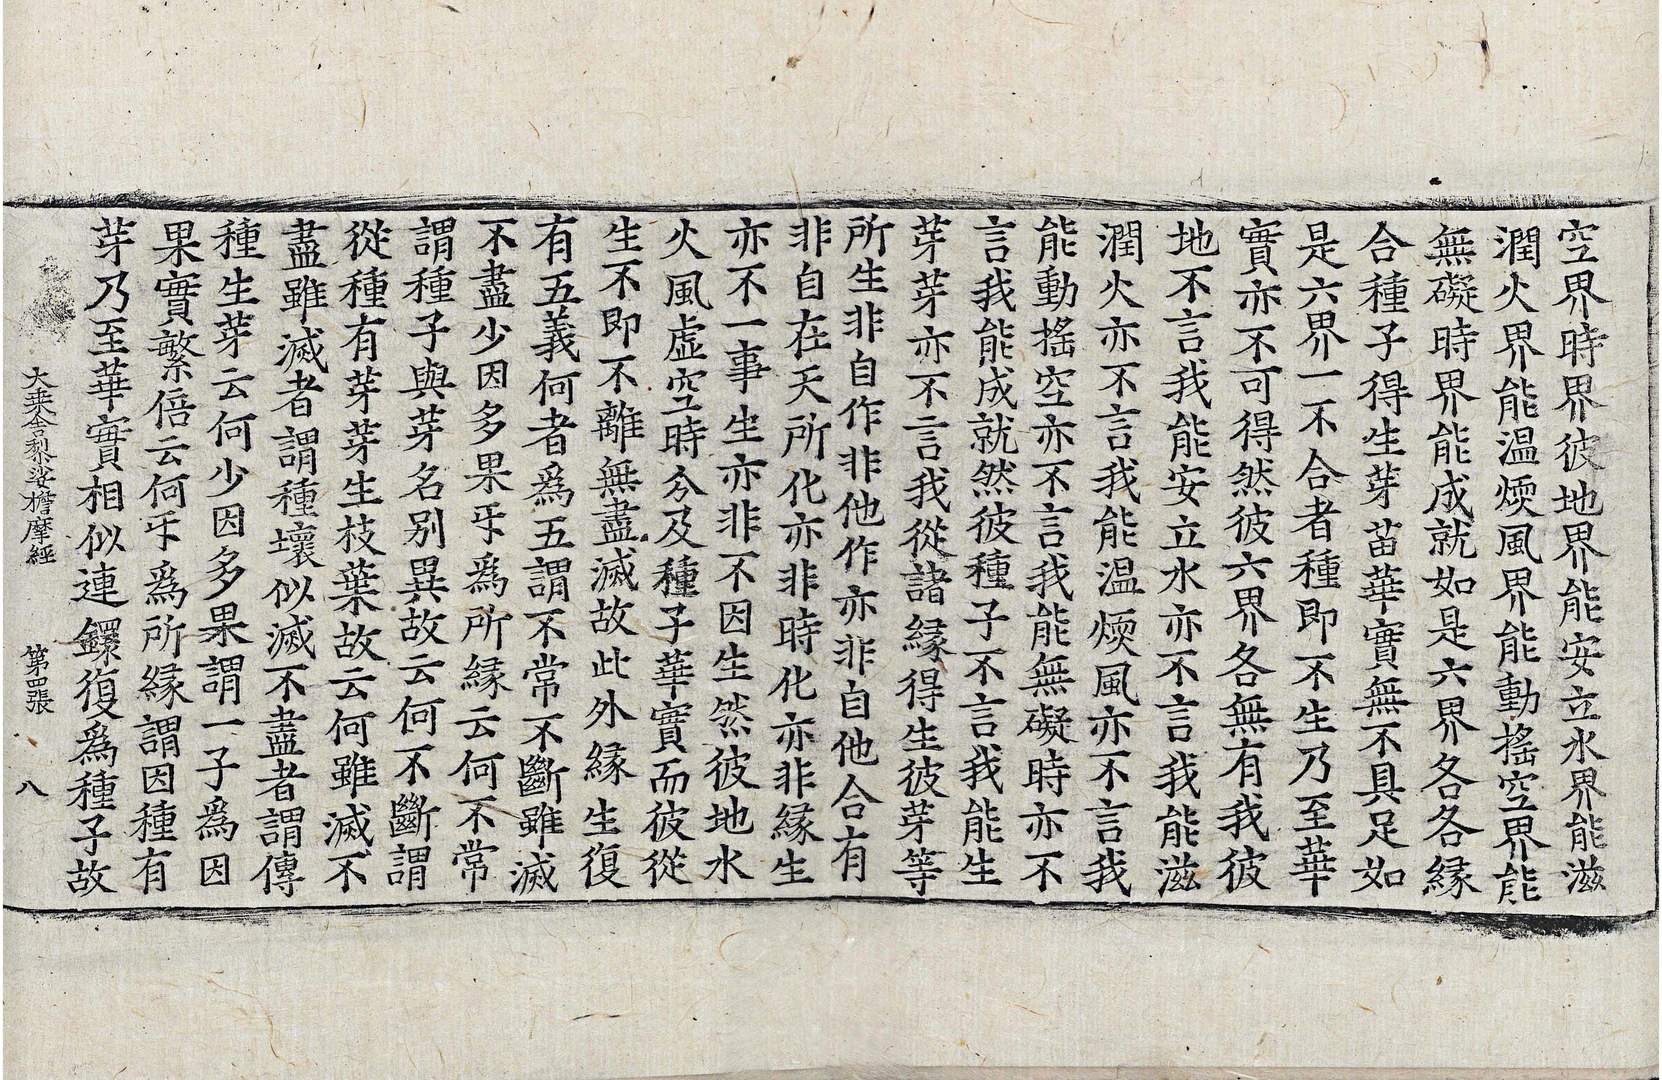 空界時界彼地界能安立水界能滋
潤火界能温煗風界能動搖空界能
無礙時界能成就如是六界各各縁
合種子得生芽苗華實無不具足如
是六界一不合者種即不生乃至華
實亦不可得然彼六界各無有我彼
地不言我能安立水亦不言我能滋
潤火亦不言我能温煗風亦不言我
能動搖空亦不言我能無礙時亦不
言我能成就然彼種子不言我能生
芽芽亦不言我從諸縁得生彼芽等
所生非自作非他作亦非自他合有
非自在天所化亦非時化亦非縁生
亦不一事生亦非不因生然彼地水
火風虛空時分及種子華實而彼從
生不即不離無盡滅故此外縁生復
有五義何者爲五謂不常不斷雖滅
不盡少因多果乐爲所縁云何不常
謂種子與芽名别異故云何不斷謂
從種有芽芽生枝葉故云何雖滅不
盡雖滅者謂種壞似滅不盡者謂傳
種生芽云何少因多果謂一子爲因
果實繁倍云何乐爲所縁謂因種有
芽乃至華實相似連鏁復爲種子故
大乘舎黎娑擔摩經 第四張 八